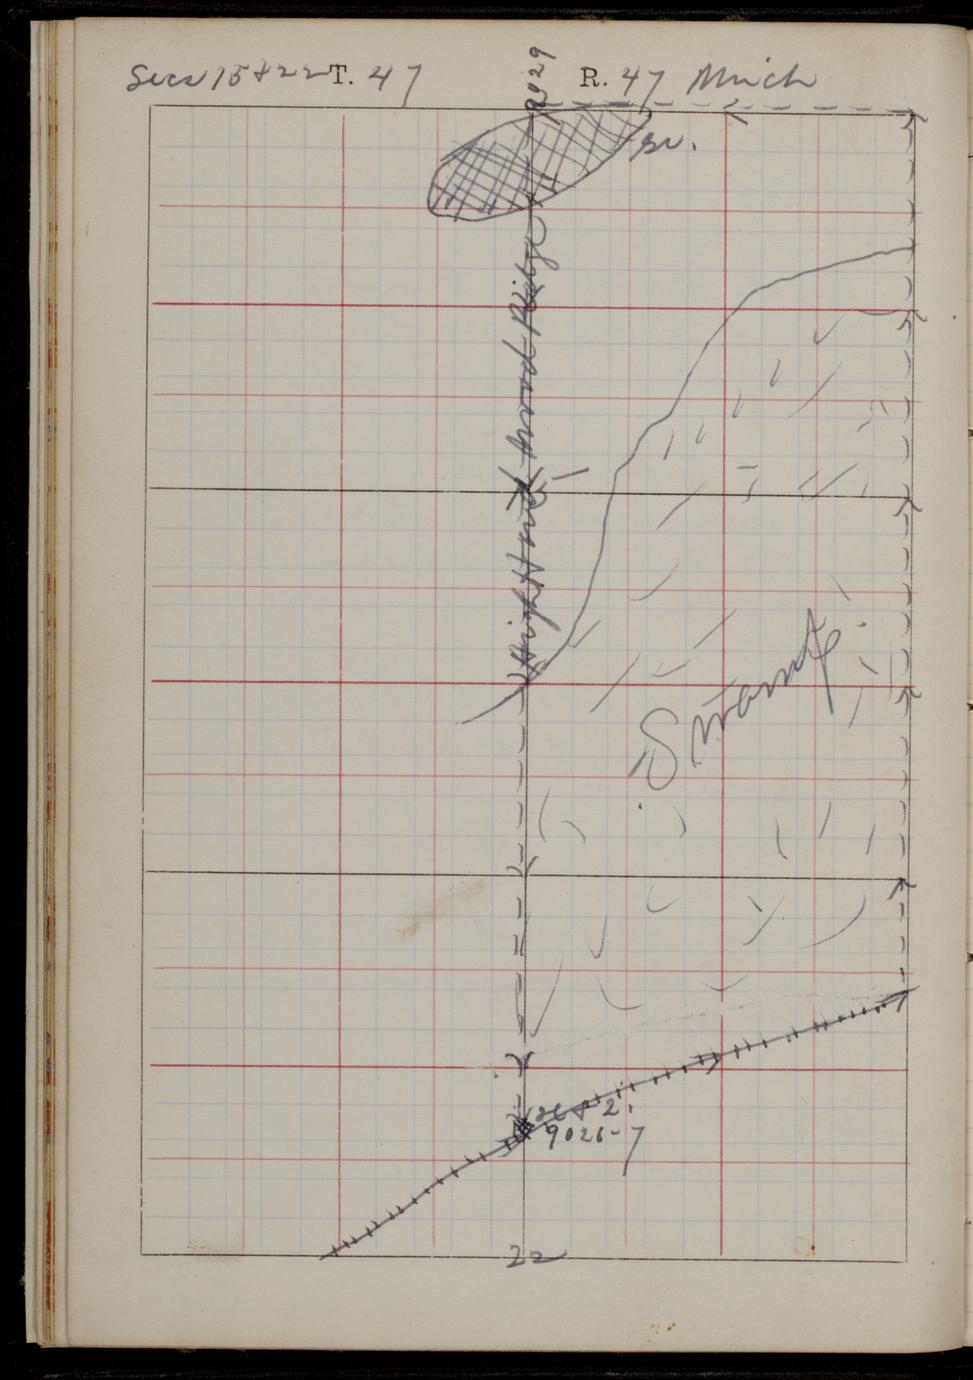 Secs 15 + 22 T. 47 R. 47 Mich
9029
High Hard wood Ridge
Swamp
9026-7
22